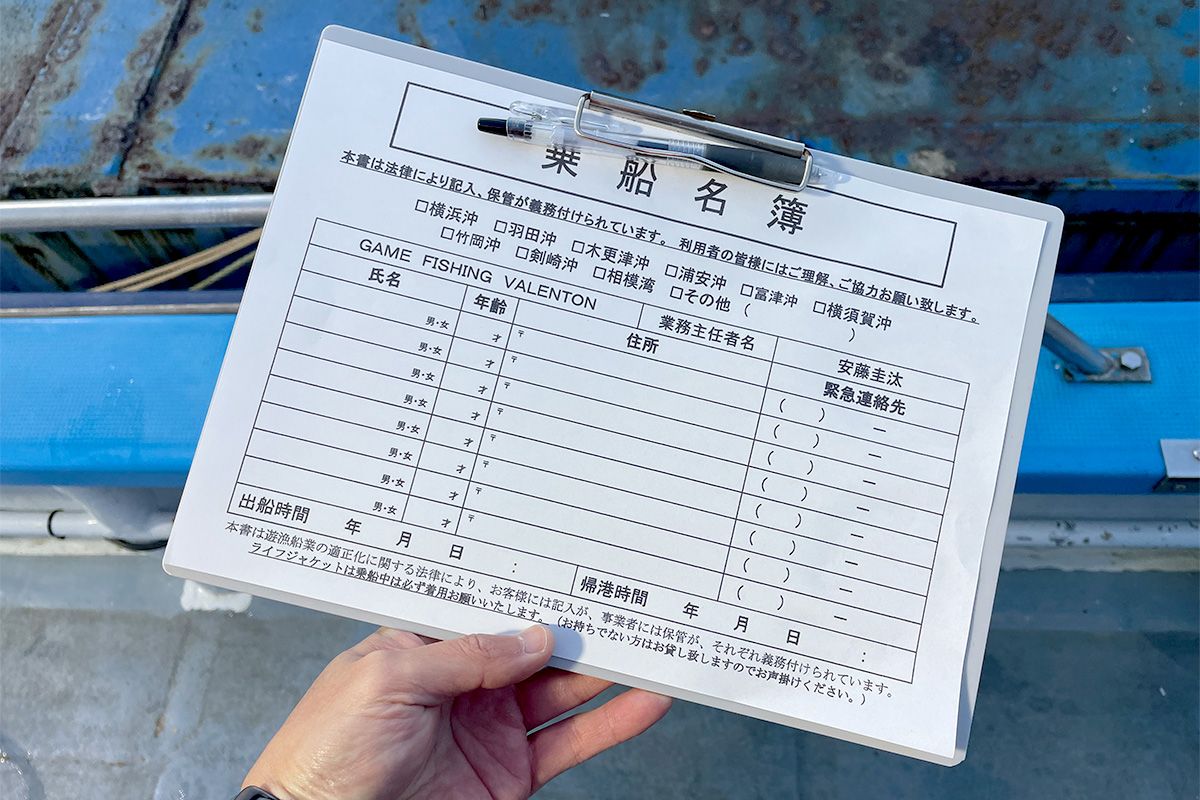 乗船名簿
本書は法律により記入、保管が義務付けられています。 利用者の皆様にはご理解、ご協力お願い致します。
□横浜沖 □羽田沖 □木更津沖 □浦安沖 □富津沖 □横須賀沖
□竹岡沖 □剣崎沖 □相模湾 □その他 ( )
GAME FISHING VALENTON 業務主任者名 安藤圭汰
氏名 年齢 住所 緊急連絡先
男・女 才 〒 ( ) ー
男・女 才 〒 ( ) ー
男・女 才 〒 ( ) ー
男・女 才 〒 ( ) ー
男・女 才 〒 ( ) ー
男・女 才 〒 ( ) ー
男・女 才 〒 ( ) ー
男・女 才 〒 ( ) ー
出船時間 年 月 日 : 帰港時間 年 月 日 :
本書は遊漁船業の適正化に関する法律により、お客様には記入が、事業者には保管が、それぞれ義務付けられています。
ライフジャケットは乗船中は必ず着用お願いいたします。(お持ちでない方はお貸し致しますのでお声掛けください。)